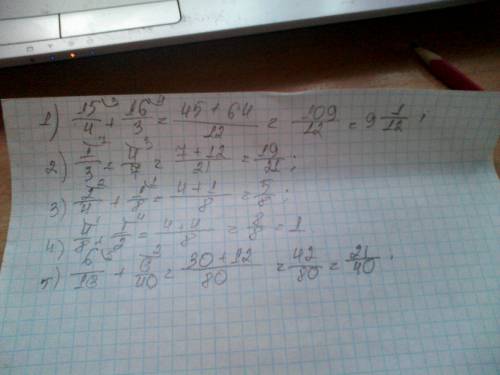 1) 15/4 + 16/3 = 45+64/12 = 109/12 = 9 1/12;
2) 1/3 + 4/7 = 7+12/21 = 19/21;
3) 2/4 + 1/8 = 4+1/8 = 5/8;
4) 4/8 + 1/2 = 4+4/8 = 8/8 = 1
5) 6/16 + 6/40 = 30+12/80 = 42/80 = 21/40;